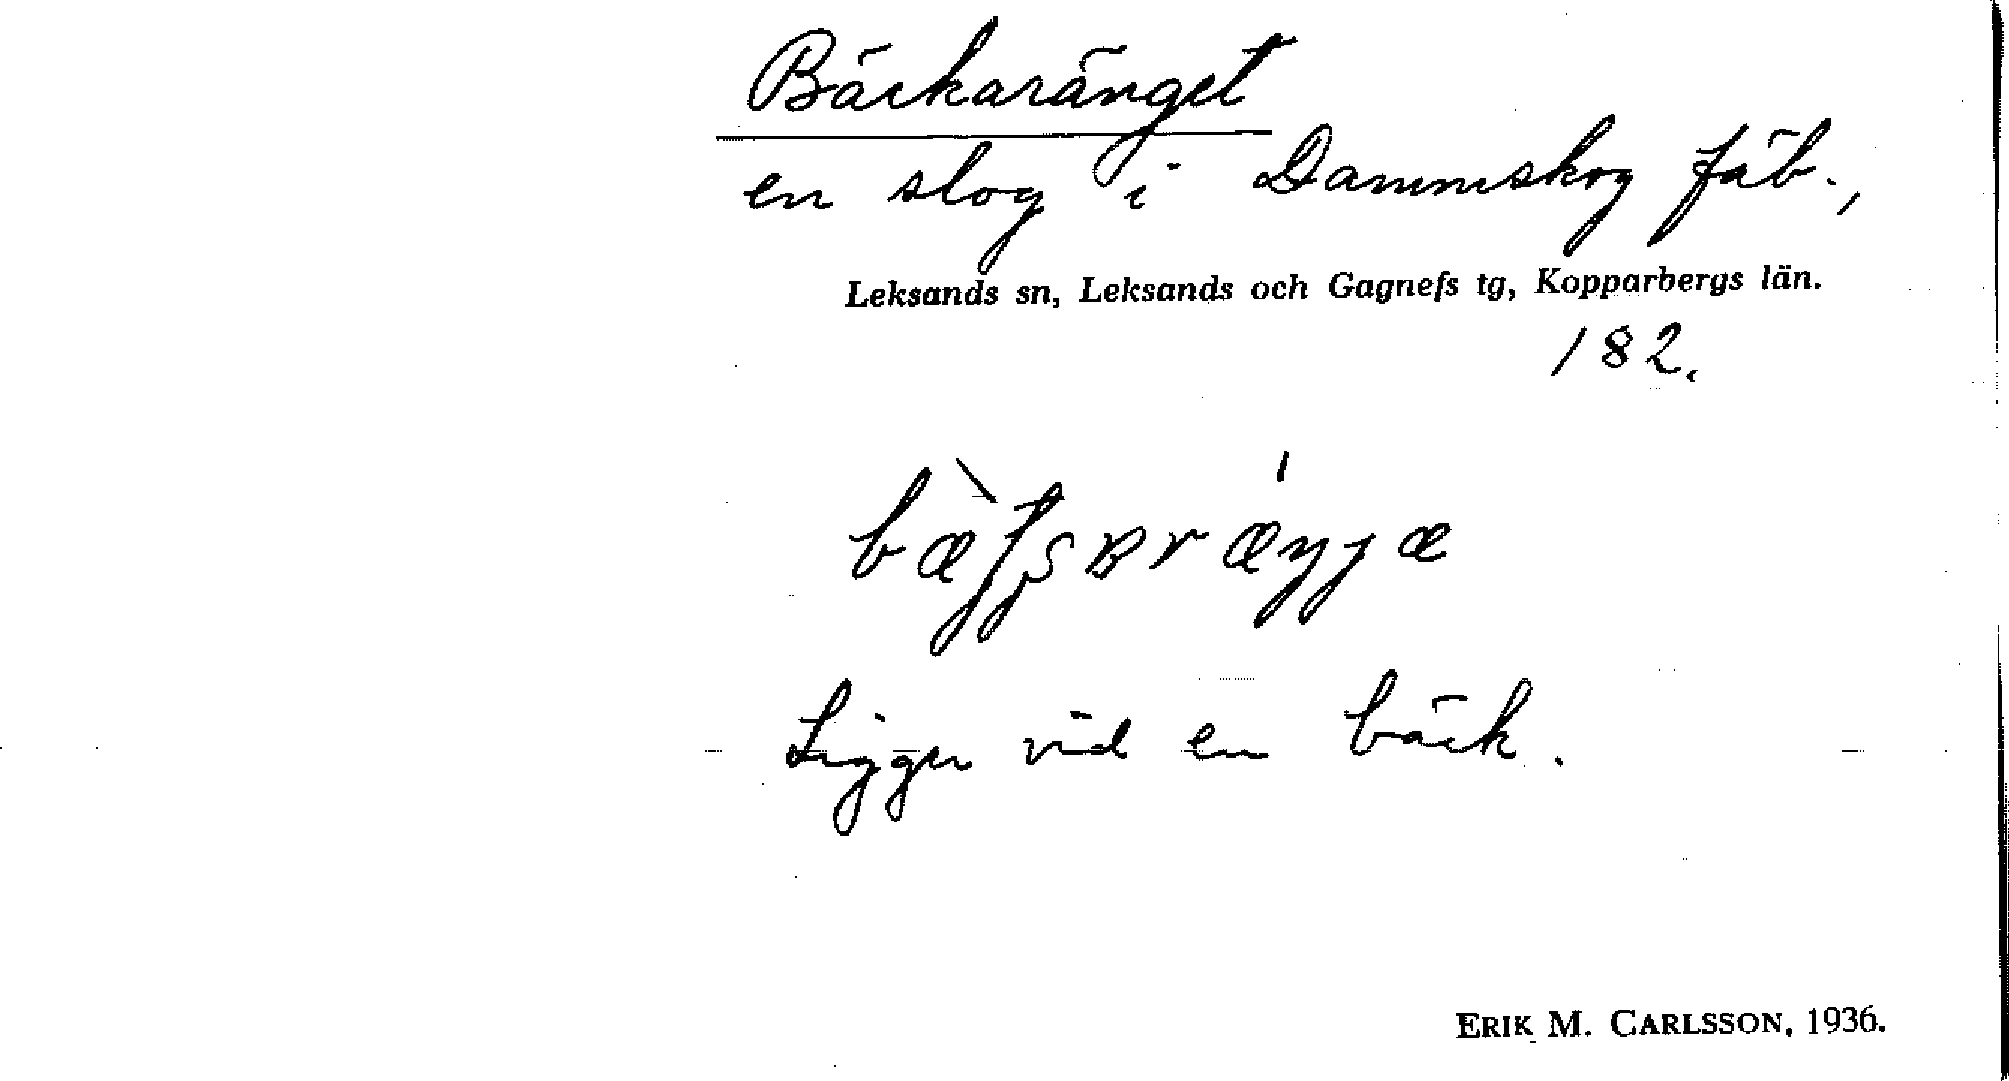 Bäckaränget
en slog i Dammskog fäb.,
Leksands sn, Leksands och Gagnefs tg, Kopparbergs län.
182.
Ligger vid en bäck.
ERIK M. CARLSSON, 1936.